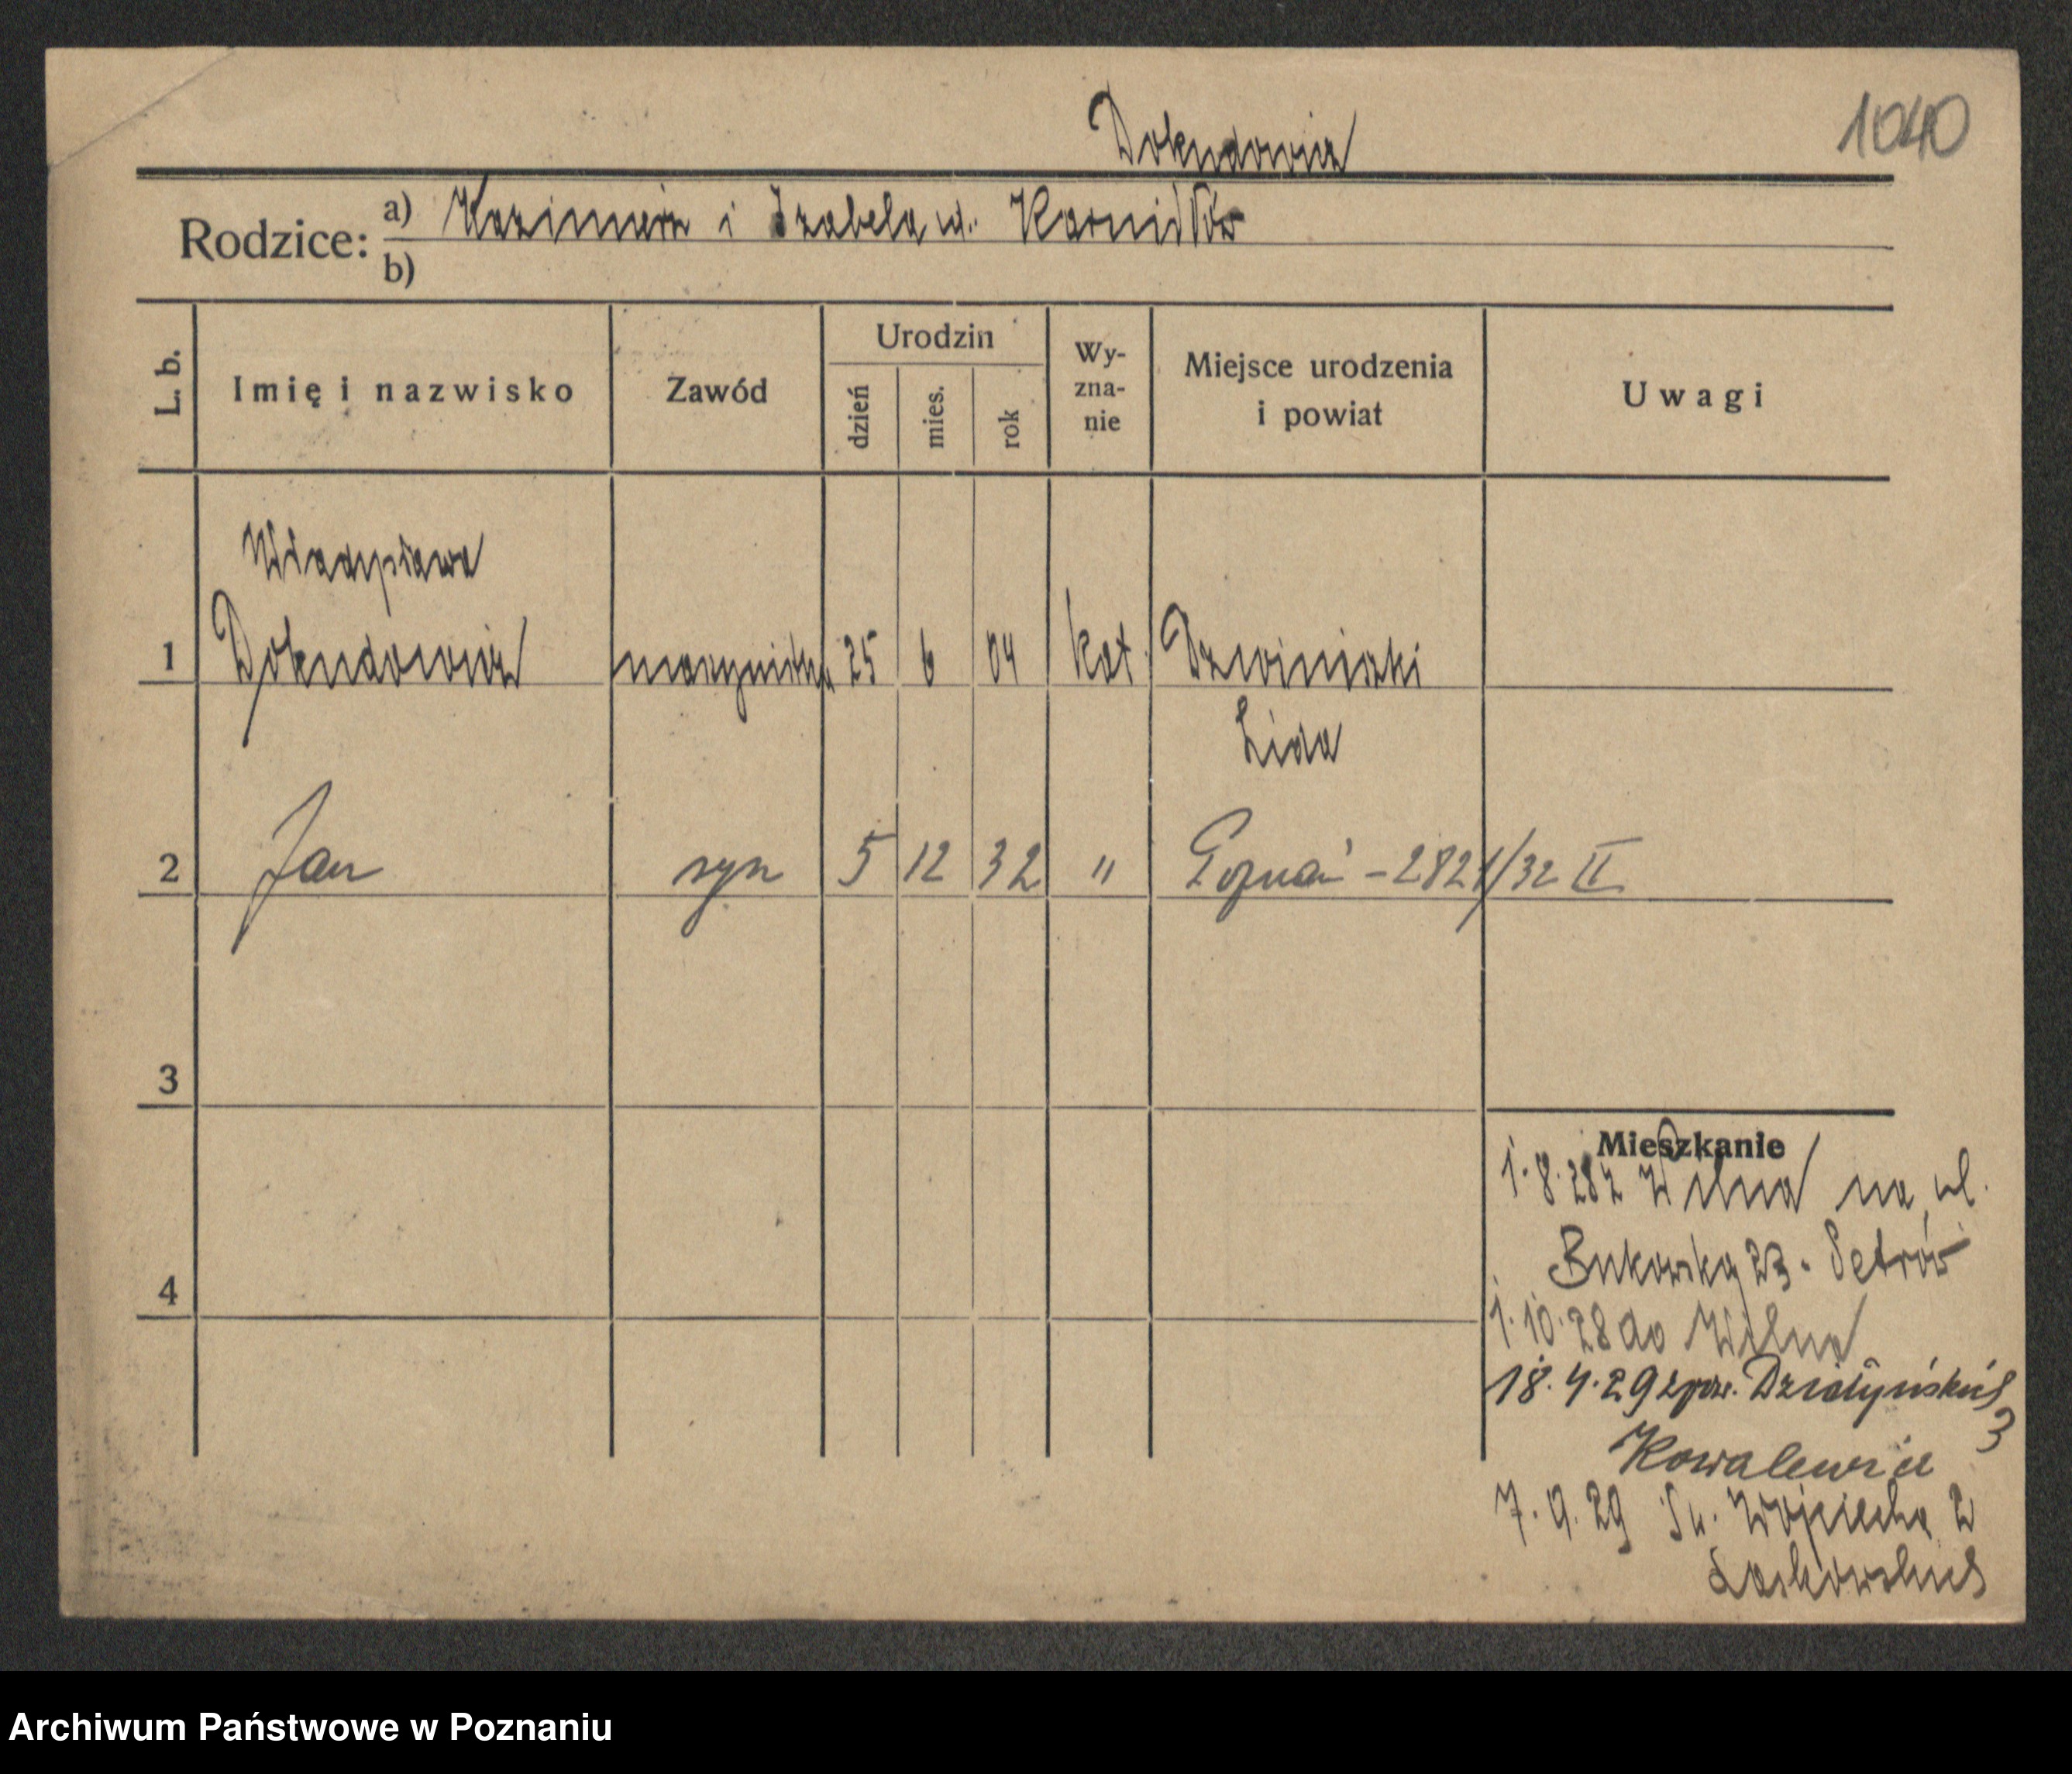 Dokudowicz
1040
Rodzice: a) Kazimierz i Izabela ur.
b)
L. b. Imię i nazwisko Zawód Urodzin dzień mies. rok Wy-zna-nie Miejsce urodzenia i powiat Uwagi
Władysława
1 Dokudowicz 25 6 04 kat.
Lida
2 Jan syn 5 12 32 " Poznań - 2821/32 II
3
4
Mieszkanie
1.8.28 z Wilna na ul.
Bukowską 23.
1.10.28 do Wilna
18.4.29 z pow. Działyńskich 3
Kowalewicz
7.9.29 Św. Wojciecha 2
Archiwum Państwowe w Poznaniu